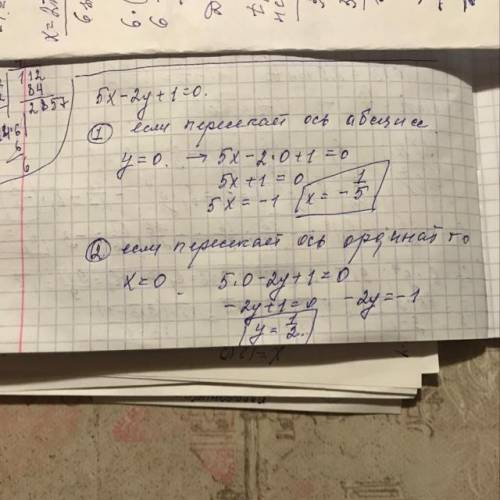 x=2
112
84
2857
5x-2y+1=0.
① если пересекает ось абсцисс
y=0. → 5x-2·0+1=0
5x+1=0
5x=-1 x=-1/5
② если пересекает ось ординат то
x=0 5·0-2y+1=0
-2y+1=0 -2y=-1
y=1/2.